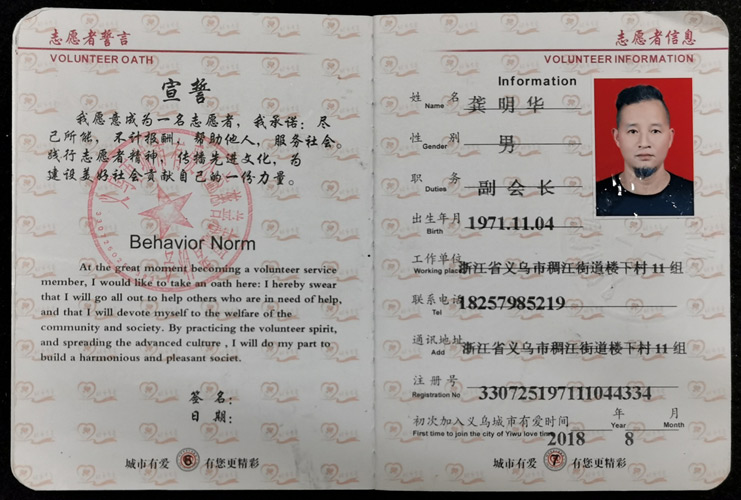 志愿者誓言
VOLUNTEER OATH
宣誓
我愿意成为一名志愿者，我承诺：尽
己所能，不计报酬，帮助他人，服务社会。
践行志愿者精神，传播先进文化，为
建设美好社会贡献自己的一份力量。
Behavior Norm
At the great moment becoming a volunteer service
member, I would like to take an oath here: I hereby swear
that I will go all out to help others who are in need of help,
and that I will devote myself to the welfare of the
community and society. By practicing the volunteer spirit,
and spreading the advanced culture , I will do my part to
build a harmonious and pleasant societ.
签名：
日期：
城市有爱 6 有您更精彩
志愿者信息
VOLUNTEER INFORMATION
Information
姓名 龚明华
Name
性别 男
Gender
职务 副会长
Duties
出生年月 1971.11.04
Birth
工作单位 浙江省义乌市稠江街道楼下村 11 组
Working place
联系电话 18257985219
Tel
通讯地址 浙江省义乌市稠江街道楼下村 11 组
Add
注册号 330725197111044334
Registration No
初次加入义乌城市有爱时间 年 月
First time to join the city of Yiwu love time 2018 Year 8 Month
城市有爱 7 有您更精彩